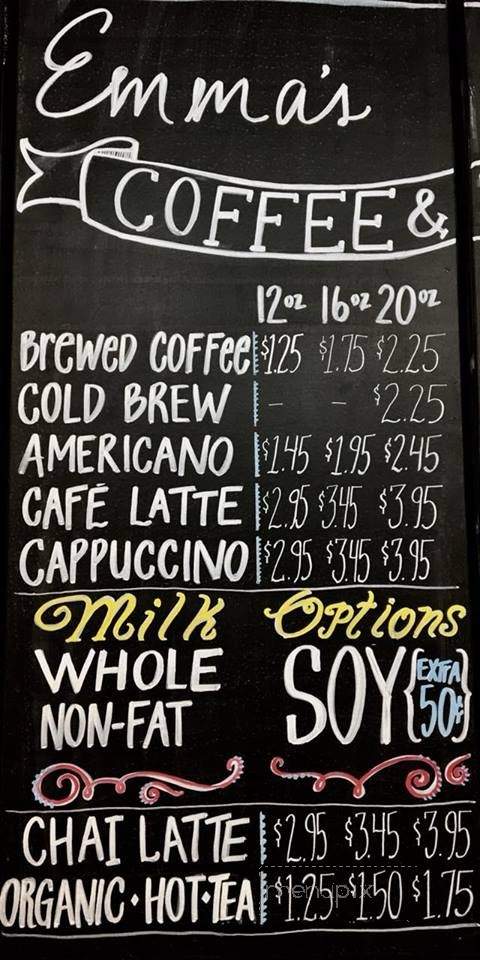 Emma's
COFFEE &
12oz 16oz 20oz
BREWED COFFEE $1.25 $1.75 $2.25
COLD BREW - - $2.25
AMERICANO $1.45 $1.95 $2.45
CAFÉ LATTE $2.95 $3.45 $3.95
CAPPUCCINO $2.95 $3.45 $3.95
Milk Options
WHOLE SOY {EXTRA 50¢}
NON-FAT
CHAI LATTE $2.95 $3.45 $3.95
ORGANIC•HOT•TEA $1.25 $1.50 $1.75
menupix